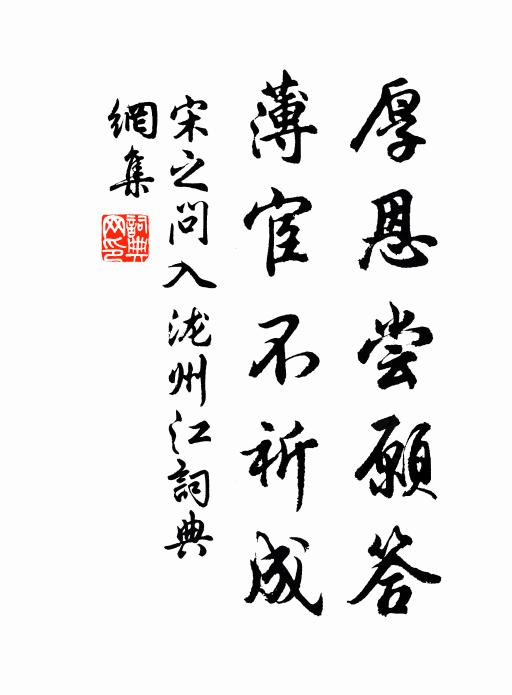 厚恩尝願答
薄宦不祈成
宋之问入泷州江詞典
網集
詞典
网印